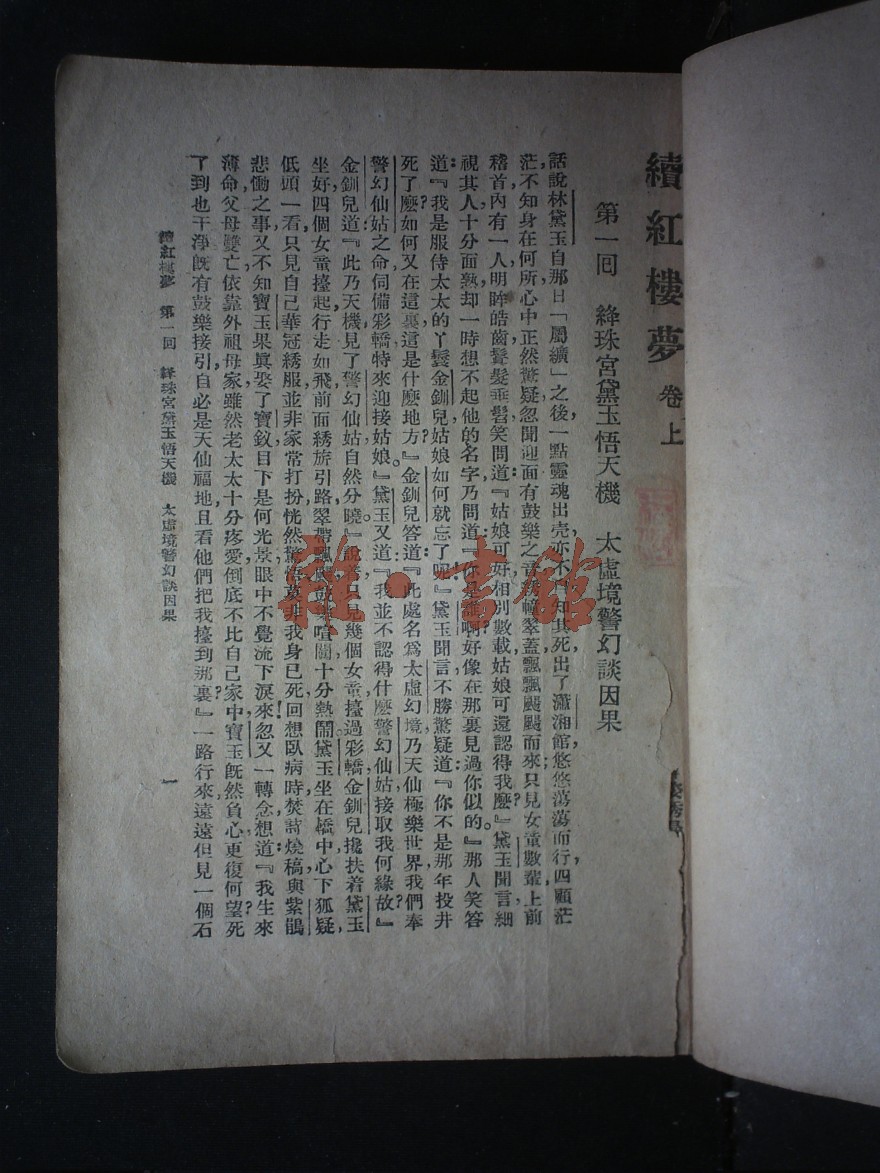 續紅樓夢 卷上
第一回 絳珠宮黛玉悟天機 太虛境警幻談因果
話說林黛玉自那日「屬纊」之後一點靈魂出壳亦不自知其死出了瀟湘館悠悠蕩蕩而行四顧茫
茫不知身在何所心中正然驚疑忽聞迎面有鼓樂之音幢翠蓋飄飄颺颺而來只見女童數輩上前
稽首內有一人明眸皓齒鬒髮垂髫笑問道:『姑娘可好相別數載姑娘可還認得我麽?』黛玉聞言細
視其人十分面熟却一時想不起他的名字乃問道:『你是誰啊?好像在那裏見過你似的。』那人笑答
道:『我是服侍太太的丫鬟金釧兒姑娘如何就忘了呢?』黛玉聞言不勝驚疑道:『你不是那年投井
死了麽?如何又在這裏?這是什麽地方?』金釧兒答道:『此處名爲太虛幻境乃天仙極樂世界我們奉
警幻仙姑之命伺備彩轎特來迎接姑娘。』黛玉又道:『我並不認得什麽警幻仙姑接取我何緣故?』
金釧兒道:『此乃天機見了警幻仙姑自然分曉。』說着只見幾個女童擡過彩轎金釧兒攙扶着黛玉
坐好四個女童擡起行走如飛前面綉旂引路翠帶飄颻鼓樂喧闐十分熱鬧。黛玉坐在轎中心下狐疑,
低頭一看只見自己華冠綉服並非家常打扮恍然驚悟莫非我身已死回想臥病時焚詩燒稿與紫鵑
悲慟之事又不知寶玉果眞娶了寶釵目下是何光景眼中不覺流下淚來忽又一轉念想道:『我生來
薄命父母雙亡依靠外祖母家雖然老太太十分疼愛倒底不比自己家中寶玉旣然負心更復何望?死
了到也干淨旣有鼓樂接引自必是天仙福地且看他們把我擡到那裏?』一路行來遠遠但見一個石
續紅樓夢 第一回 絳珠宮黛玉悟天機 太虛境警幻談因果 一
雜·書館